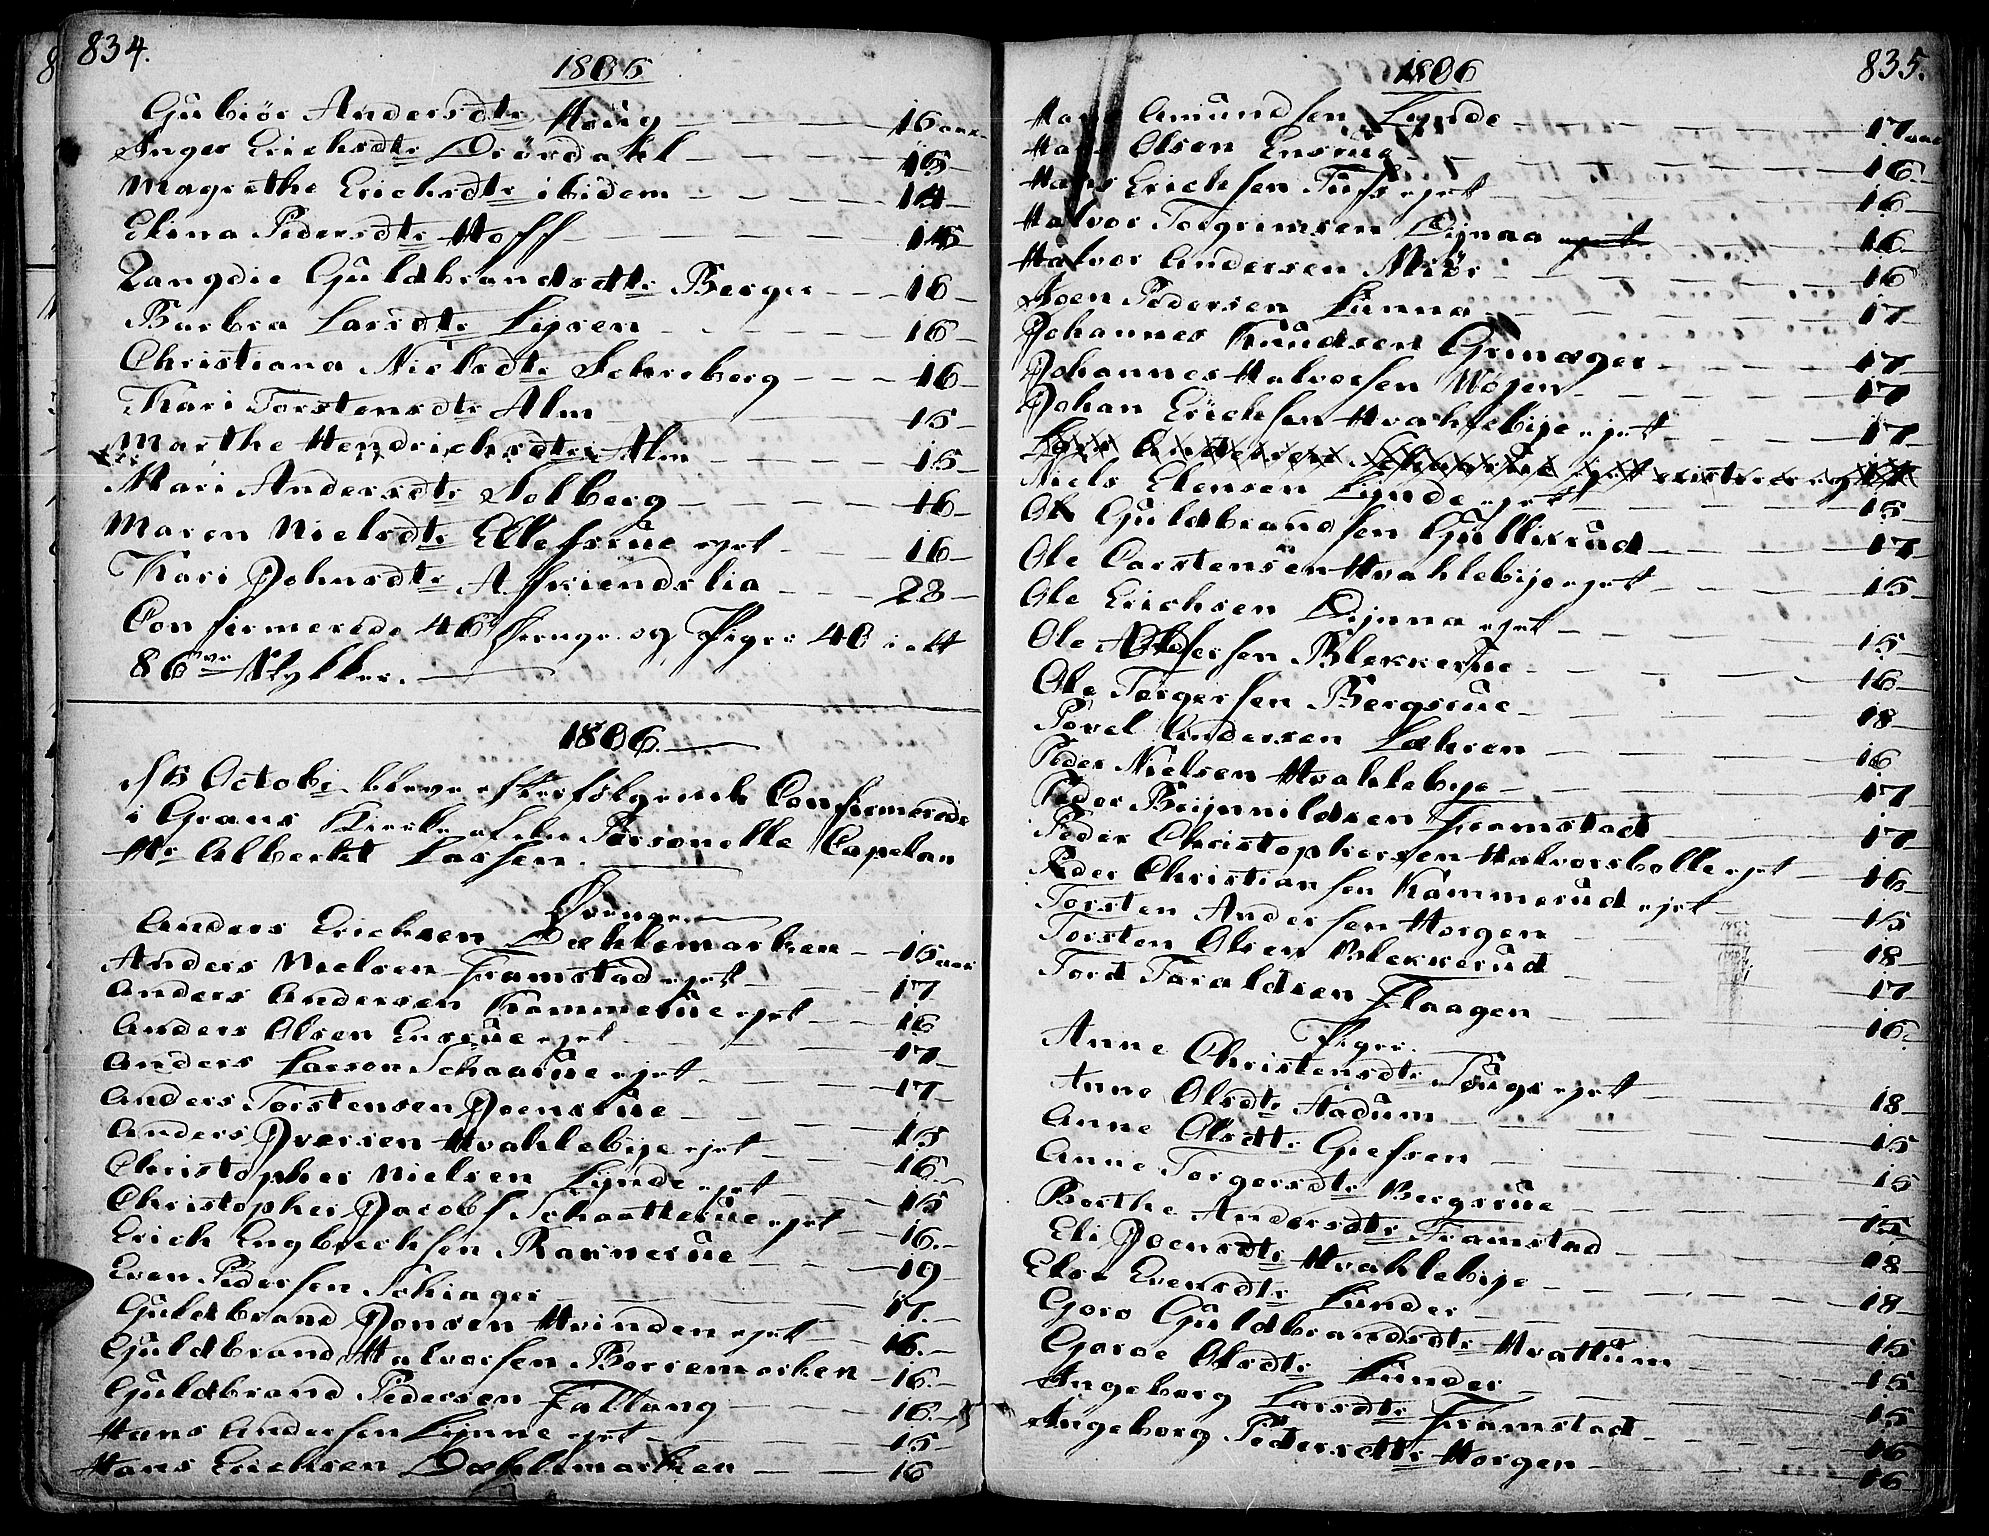 834.
1806
Gubiør Andersdtr Houg 16 aar
Inger Erichsdtr Drørdahl 15
Magrethe Erichsdtr ibidem 14
Elina Pedersdtr Hoff 15
Rangdie Guldbrandsdtr Berger 16
Barbra Larsdtr Lysen 16
Christiana Nielsdtr Schreberg 16
Kari Torstensdtr Alm 15
Marthe Hendrichsdtr Alm 15
Mari Andersdtr Solberg 16
Maren Nielsdtr Ellefsrue ejet 16
Kari Johnsdtr Askiendslia 28
Confirmerede 46 Drenge og Piger 40 i alt
86 Stykker.
1806
Octobr bleve efterfølgende Confirmerede
i Grans Kirke af den Personelle Capelan
Hr Albert Lassen.
Drenge
Anders Erichsen Dæhlemarken 15 aar
Anders Nielsen Framstad ejet 17
Anders Andersen Kammerue ejet 16
Anders Olsen Ensrue ejet 17
Anders Larsen Schaarue ejet 17
Anders Torstensen Joensrue 15
Anders Iversen Hvahlebye ejet 16
Christopher Nielsen Lynde ejet 15
Christopher Jacobs. Schoatterue ejet 16
Erich Engbrechsen Ravnerue 19
Even Pedersen Schiager 17
Guldbrand Jonsen Hvinden ejet 16
Guldbrand Halvorsen Borremarken 16
Guldbrand Pedersen Fallang 16
Hans Andersen Lynne ejet 15
Hans Erichsen Dæhlemarken 16
835.
1806
Hans Amundsen Lynde 17 aar
Hans Olsen Ensrue 16
Hans Erichsen Tufs ejet 16
Halvor Torgrimsen Dynna ejet 16
Halvor Andersen Miør 16
Joen Pedersen Lunna 17
Johannes Knudsen Grinager 17
Johannes Halvorsen Vøjen 17
Johan Erichsen Hvahlebye ejet 17
Lars Andersen Schaarue ejet
Niels Evensen Lynde ejet 15
Ole Guldbrandsen Gullixrud 17
Ole Carstensen Hvahlebye ejet 15
Ole Erichsen Dynna ejet 15
Ole Blekkerue 16
Ole Torgersen Bergsrue 18
Povel Andersen Læhren 16
Peder Nielsen Hvahlebye 17
Peder Brynnildsen Framstad 17
Peder Christophersen Halvorsbølle ejet 16
Peder Christiansen Kammerud ejet 15
Torsten Andersen Horgen 18
Torsten Olsen Blekkerud 17
Tord Toraldsen Flaagen 16
Piger
Anne Christensdtr Tougs ejet 18
Anne Olsdtr Hadum 15
Anne Olsdtr Grefsen 15
Anne Torgersdtr Bergsrue 15
Berthe Andersdtr Framstad 18
Eli Joensdtr Hvahlebye 18
Else Evensdtr Lunder 15
Goro Guldbrandsdtr Hvattum 15
Goroe Olsdtr Lunder 15
Ingeborg Larsdtr Framstad 16
Ingeborg Pedersdtr Horgen 16